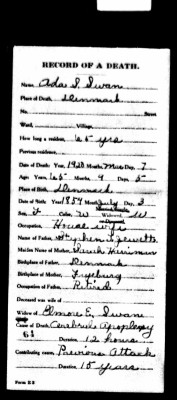 RECORD OF A DEATH.
Name, Ada S. Swan
Place of Death, Denmark
No. Street
Ward, Village,
How long a resident, 65 yrs
Previous residence,
Date of Death: Year, 1920 Month, Mar Day, 7
Age: Years 65 Months, 9 Days, 5
Place of Birth, Denmark
Date of Birth: Year 1854 Month, July Day, 3
Sex, Color, W Widowed W
Occupation, House wife
Name of Father, Stephen Jewett
Maiden Name of Mother,
Birthplace of Father, Denmark
Birthplace of Mother, Fryeburg
Occupation of Father, Retired
Deceased was wife of
Widow of Elmore E. Swan
Cause of Death, Cerebral Apoplexy
Duration, 12 hours
Contributing cause, Previous Attack
Duration 15 years